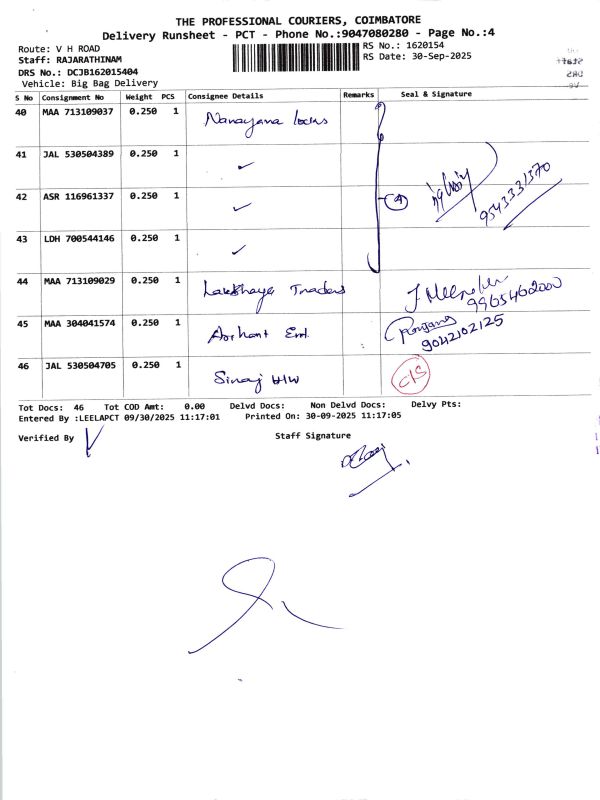 THE PROFESSIONAL COURIERS, COIMBATORE
Delivery Runsheet - PCT - Phone No.:9047080280 - Page No.:4
Route: V H ROAD
RS No.: 1620154
Staff: RAJARATHINAM
RS Date: 30-Sep-2025
DRS No.: DCJB162015404
Vehicle: Big Bag Delivery
S No Consignment No Weight PCS Consignee Details Remarks Seal & Signature
40 MAA 713109037 0.250 1 Narayana locks
41 JAL 530504389 0.250 1 ✓
42 ASR 116961337 0.250 1 ✓ 4 9543331370
43 LDH 700544146 0.250 1 ✓
44 MAA 713109029 0.250 1 Lakshaya Traders 9965462000
45 MAA 304041574 0.250 1 Arihant Ent. 9042102125
46 JAL 530504705 0.250 1 Siraj H/W C/S
Tot Docs: 46 Tot COD Amt: 0.00 Delvd Docs: Non Delvd Docs: Delvy Pts:
Entered By :LEELAPCT 09/30/2025 11:17:01 Printed On: 30-09-2025 11:17:05
Verified By
Staff Signature